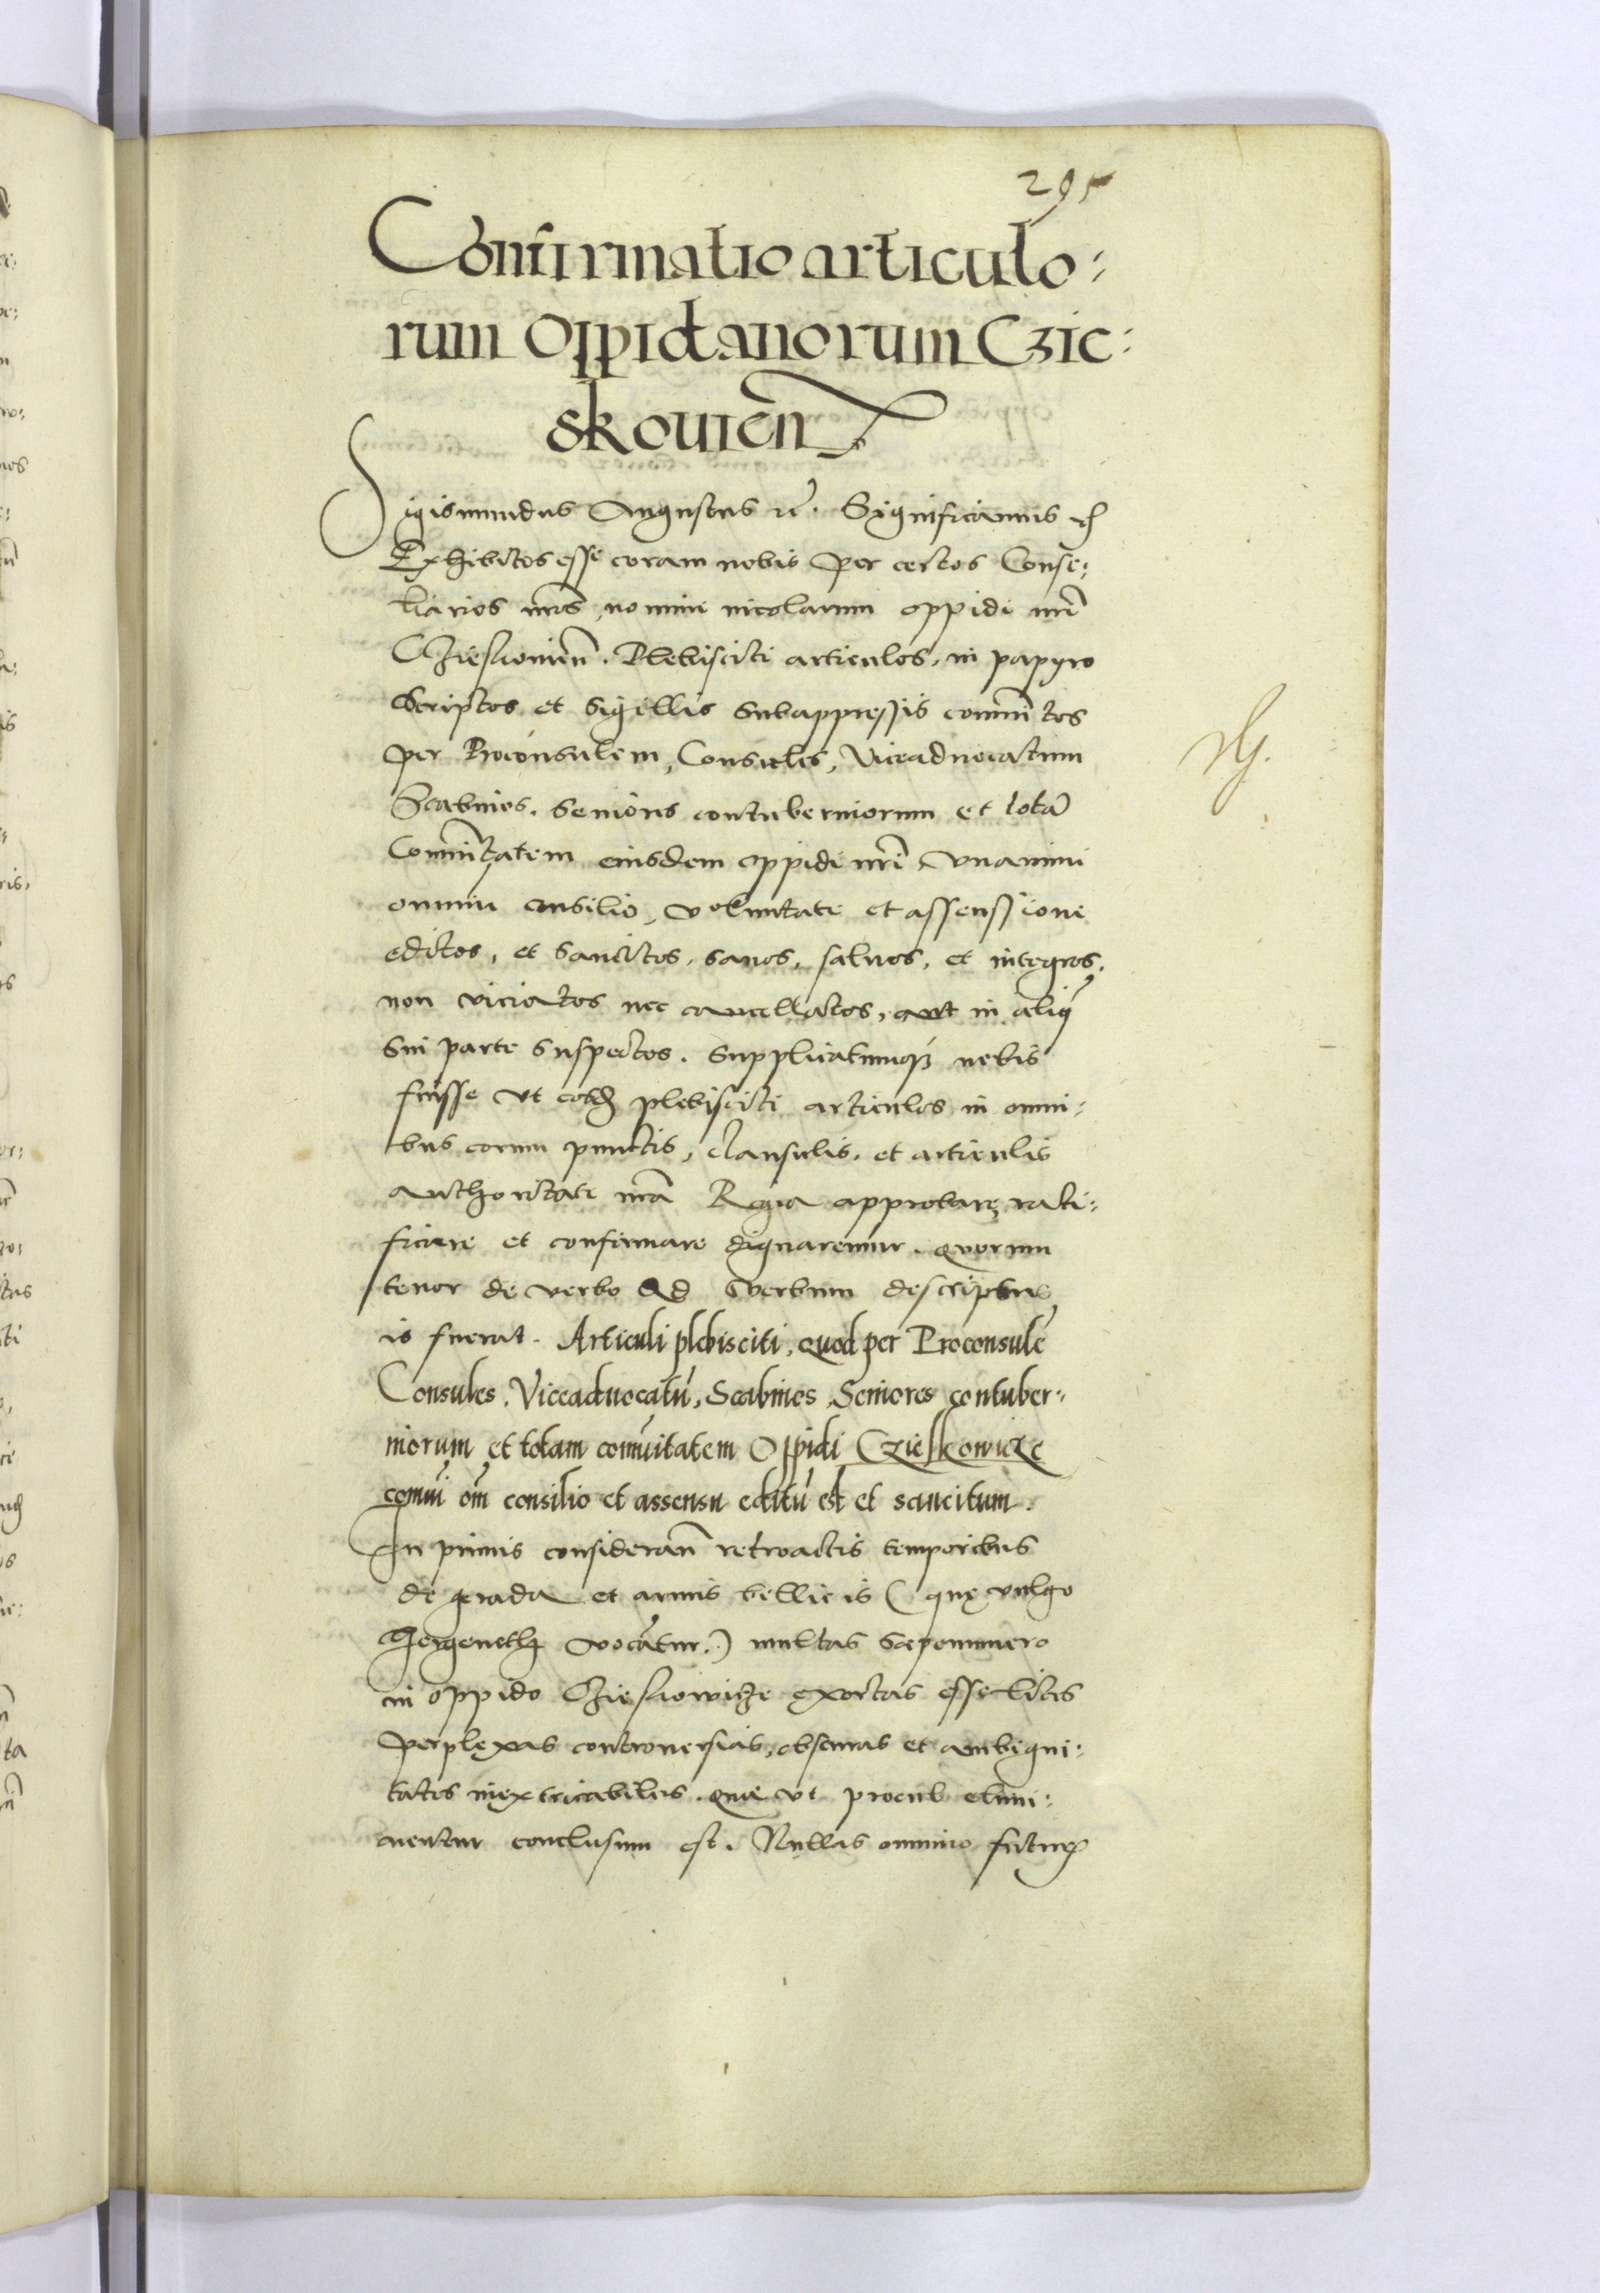 295
Confirmatio articulo:
rum Oppidanorum Czic:
skouien̄
Sigismundus Augustus rc̄. Significamus rc̄
Exhibitos esse coram nobis per certos Consi:
liarios nr̄os, nomine incolarum oppidi nr̄i
Czieskouien̄. Plebisciti articulos, in papyro
scriptos et sigillis subappressis com̄unitos
per Proconsulem, Consules, Viceaduocatum
Scabinos, Seniores contuberniorum et totā
Com̄unitatem eiusdem oppidi nr̄i vnanimi
omniu consilio, voluntate et assenssione
editos, et sancitos, sanos, saluos, et integros,
non viciatos nec cancellatos, aut in aliq̄
sui parte suspectos. Supplicatumq̄ nobis
fuisse vt eosd̄ plebisciti articulos in omni:
bus eorum punctis, clausulis, et articulis
authoritate nr̄a Regia approbare, rati:
ficare et confirmare dignaremur. Quorum
tenor de verbo ad verbum descriptus
is fuerat. Articuli plebisciti, quod per Proconsulē
Consules, Viceaduocatū, Scabinos, Seniores contuber:
niorum et totam comūitatem Oppidi Czieskowicze
comūi om̄ consilio et assensu editū est et sancitum.
In primis consideran̄ retroactis temporibus
de gerada et armis bellicis (quę vulgo
Hergeneth vocātur.) multas saepenumero
in oppido Czieskowicze exortas esse lites
perplexas controuersias, obscuras et ambigui:
tates inextricabiles. Quę vt procul elimi:
nentur conclusum est. Nullas omnino futur